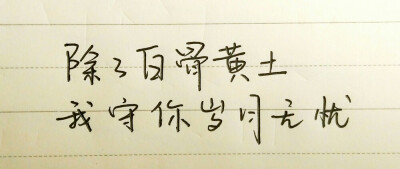 除了白骨黄土
我守你岁月无忧